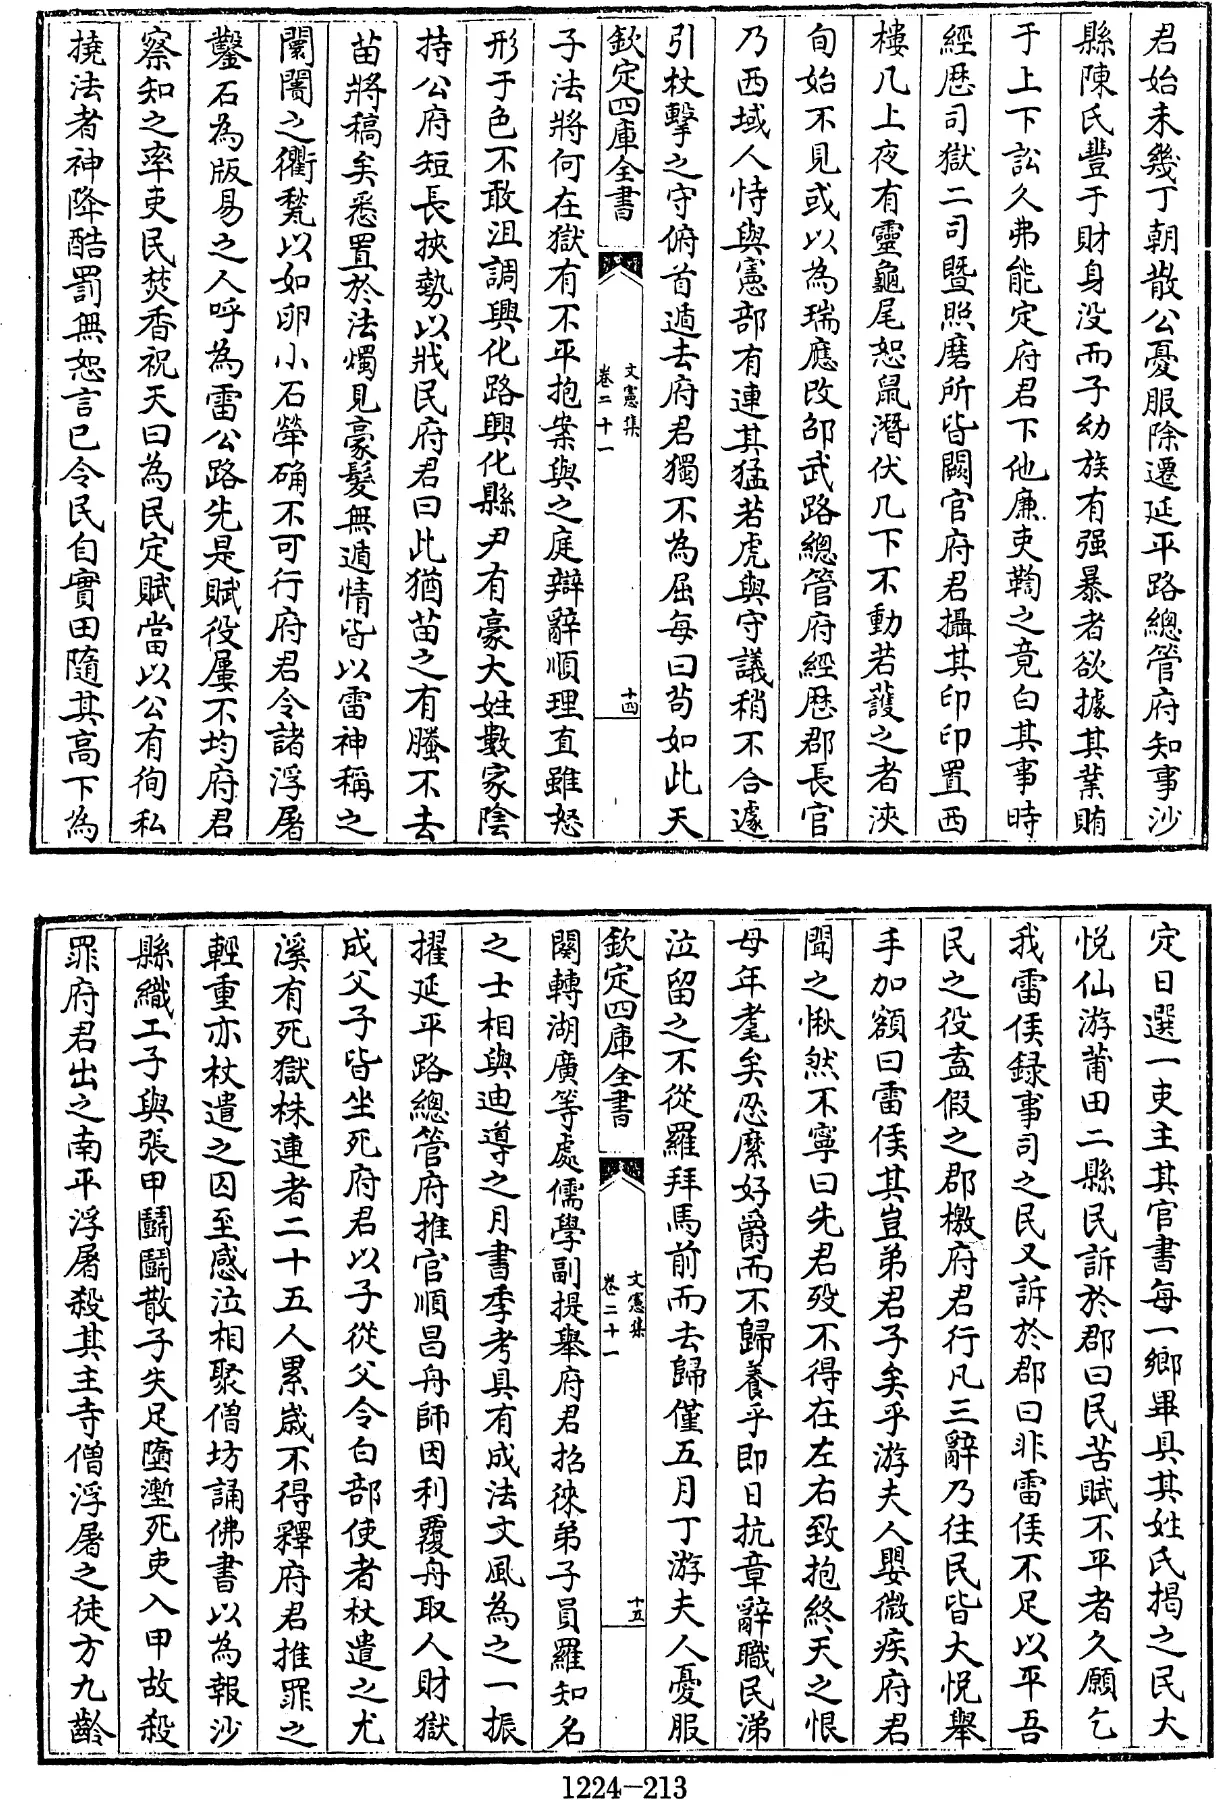 君始未幾丁朝散公憂服除遷延平路總管府知事沙
縣陳氏豐于財身没而子幼族有强暴者欲據其業賄
于上下訟久弗能定府君下他廉吏鞫之竟白其事時
經歴司獄二司暨照磨所皆闕官府君攝其印印置西
樓几上夜有靈龜尾恕鼠潛伏几下不動若䕶之者浹
旬始不見或以為瑞應改邵武路總管府經歴郡長官
乃西域人恃與憲部有連其猛若虎與守議稍不合遽
引杖擊之守俯首遁去府君獨不為屈每曰茍如此天
欽定四庫全書
文憲集
卷二十一
十四
子法將何在獄有不平抱案與之庭辯辭順理直雖怒
形于色不敢沮調興化路興化縣尹有豪大姓數家陰
持公府短長挾勢以戕民府君曰此猶苗之有螣不去
苗將稿矣悉置於法燭見豪髮無遁情皆以雷神稱之
闤闠之衢甃以如卵小石犖确不可行府君令諸浮屠
鑿石為版易之人呼為雷公路先是賦役屢不均府君
察知之率吏民焚香祝天曰為民定賦當以公有徇私
撓法者神降酷罰無恕言已令民自實田隨其高下為
定日選一吏主其官書每一鄉畢具其姓氏揭之民大
悦仙游莆田二縣民訴於郡曰民苦賦不平者久願乞
我雷侯録事司之民又訴於郡曰非雷侯不足以平吾
民之役盍假之郡檄府君行凡三辭乃往民皆大悦舉
手加額曰雷侯其豈弟君子矣乎游夫人嬰微疾府君
聞之愀然不寧曰先君殁不得在左右致抱終天之恨
母年耄矣忍縻好爵而不歸養乎即日抗章辭職民涕
泣留之不從羅拜馬前而去歸僅五月丁游夫人憂服
欽定四庫全書
文憲集
卷二十一
十五
闋轉湖廣等處儒學副提舉府君招徠弟子員羅知名
之士相與迪導之月書季考具有成法文風為之一振
擢延平路總管府推官順昌舟師因利覆舟取人財獄
成父子皆坐死府君以子從父令白部使者杖遣之尤
溪有死獄株連者二十五人累嵗不得釋府君推罪之
輕重亦杖遣之囚至感泣相聚僧坊誦佛書以為報沙
縣織工子與張甲鬭鬭散子失足墮壍死吏入甲故殺
罪府君出之南平浮屠殺其主寺僧浮屠之徒方九齡
1224-213